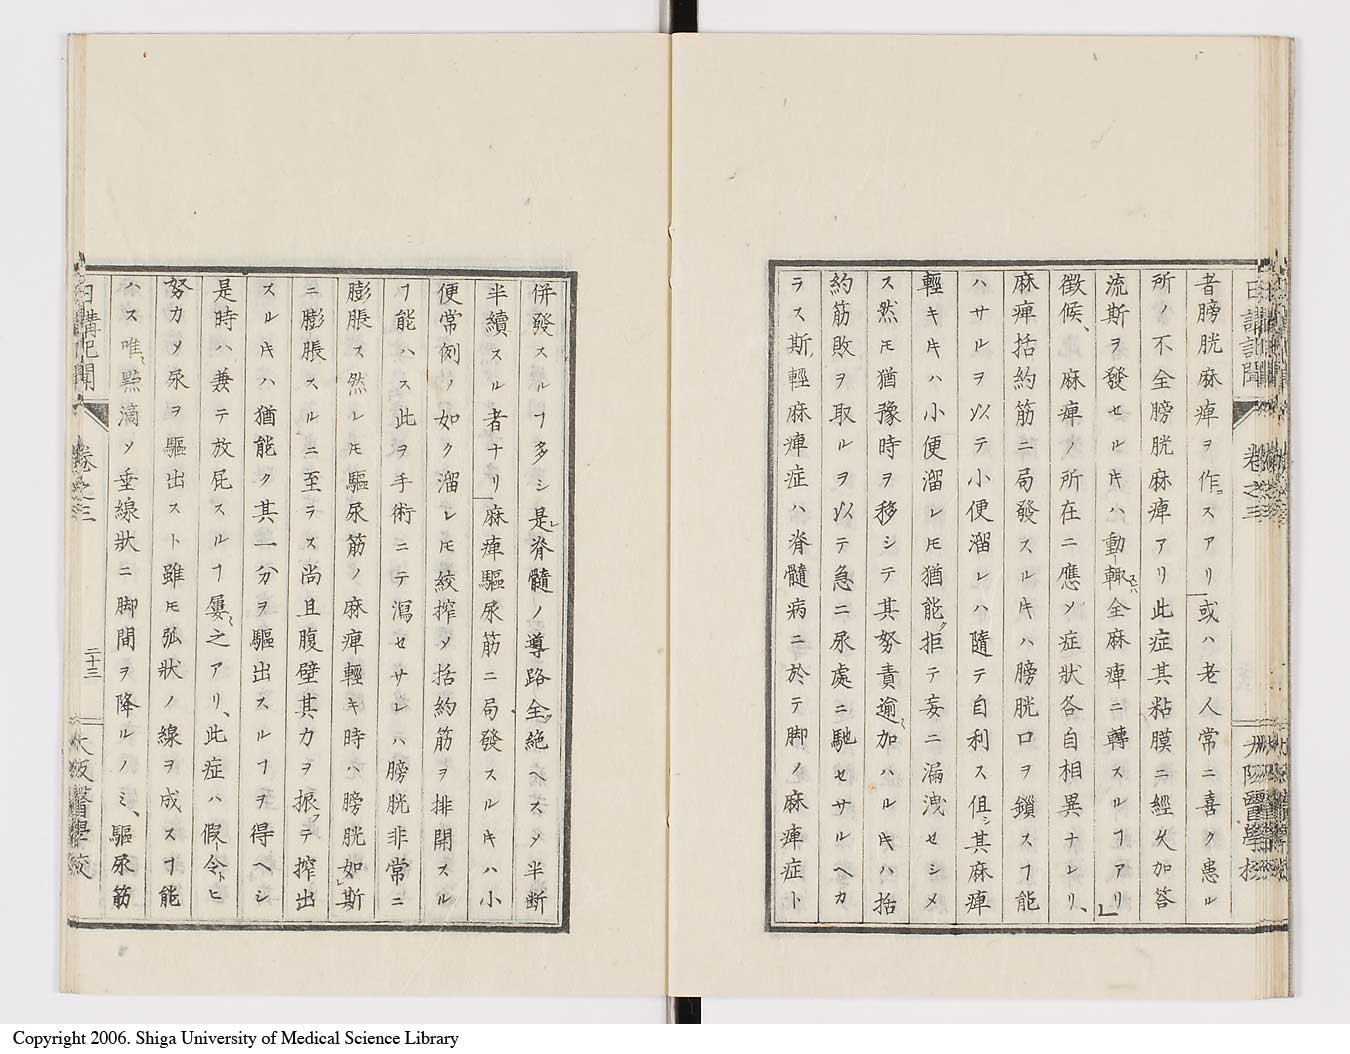 日講記聞 卷之三 大阪醫學校
者膀胱麻痺ヲ作スアリ或ハ老人常ニ喜ク患ル
所ノ不全膀胱麻痺アリ此症其粘膜ニ經久加答
流斯ヲ發セル𪜈ハ動輙スレハ全麻痺ニ轉スルヿアリ」
徴候、麻痺ノ所在ニ應〆症狀各自相異ナレリ、
麻痺括約筋ニ局發スル𪜈ハ膀胱口ヲ鎖スヿ能
ハサルヲ以テ小便溜レハ隨テ自利ス但シ其麻痺
輕キ𪜈ハ小便溜レ𪜈猶能ク拒テ妄ニ漏洩セシメ
ス然𪜈猶豫時ヲ移シテ其努責逾〻加ハル𪜈ハ括
約筋敗ヲ取ルヲ以テ急ニ尿處ニ馳セサルヘカ
ラス斯輕麻痺症ハ脊髓病ニ於テ脚ノ麻痺症ト
併發スルヿ多シ是レ脊髓ノ導路全ク絶ヘス〆半断
半續スル者ナリ麻痺驅尿筋ニ局發スル𪜈ハ小
便常例ノ如ク溜レ𪜈絞搾〆括約筋ヲ排開スル
ヿ能ハス此ヲ手術ニテ瀉セサレハ膀胱非常ニ
膨脹ス然レ𪜈驅尿筋ノ麻痺輕キ時ハ膀胱如斯
ニ膨脹スルニ至ラス尚且腹壁其力ヲ振フテ搾出
スル𪜈ハ猶能ク其一分ヲ驅出スルヿヲ得ヘシ
是時ハ兼テ放屁スルヿ屢〻之アリ、此症ハ假令ヒ
努力〆尿ヲ驅出スト雖𪜈弧狀ノ線ヲ成スヿ能
ハス唯〻點滴〆垂線狀ニ脚間ヲ降ルノミ、驅尿筋
日講記聞 卷之三 二十三 大阪醫學校
Copyright 2006. Shiga University of Medical Science Library